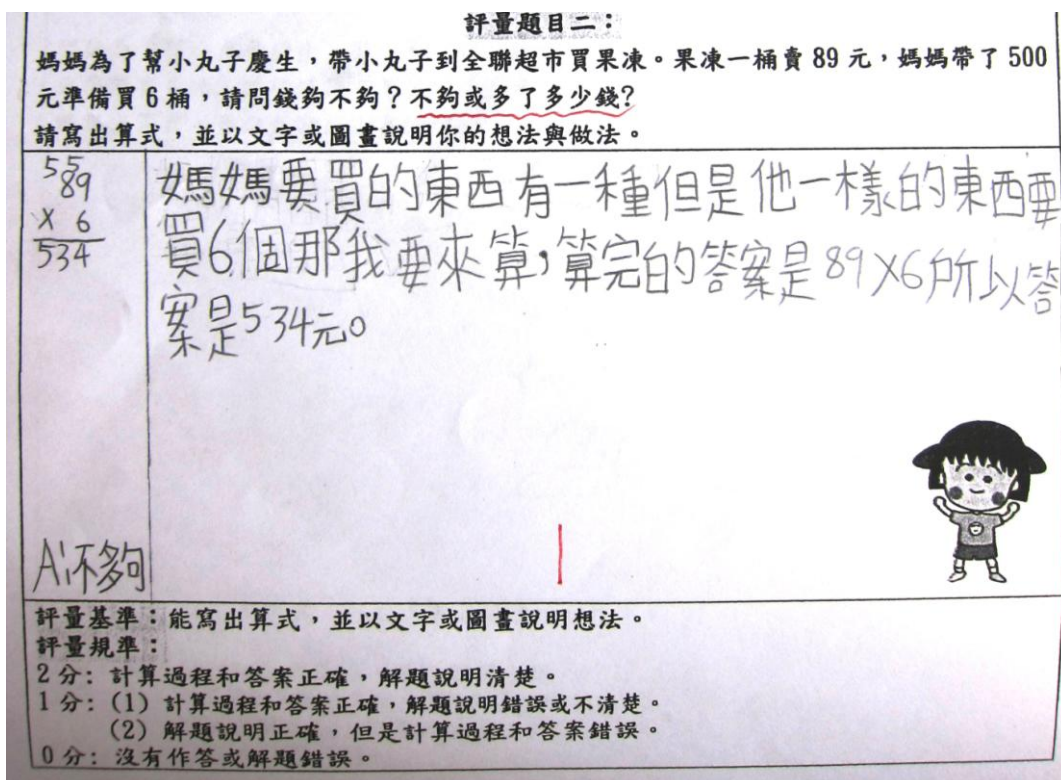 評量題目二：
媽媽為了幫小丸子慶生，帶小丸子到全聯超市買果凍。果凍一桶賣 89 元，媽媽帶了 500
元準備買 6 桶，請問錢夠不夠？不夠或多了多少錢?
請寫出算式，並以文字或圖畫說明你的想法與做法。
55
89
× 6
534
媽媽要買的東西有一種但是他一樣的東西要
買6個那我要來算，算完的答案是89×6所以答
案是534元。
1
A:不夠
評量基準：能寫出算式，並以文字或圖畫說明想法。
評量規準：
2 分: 計算過程和答案正確，解題說明清楚。
1 分: (1) 計算過程和答案正確，解題說明錯誤或不清楚。
(2) 解題說明正確，但是計算過程和答案錯誤。
0 分: 沒有作答或解題錯誤。